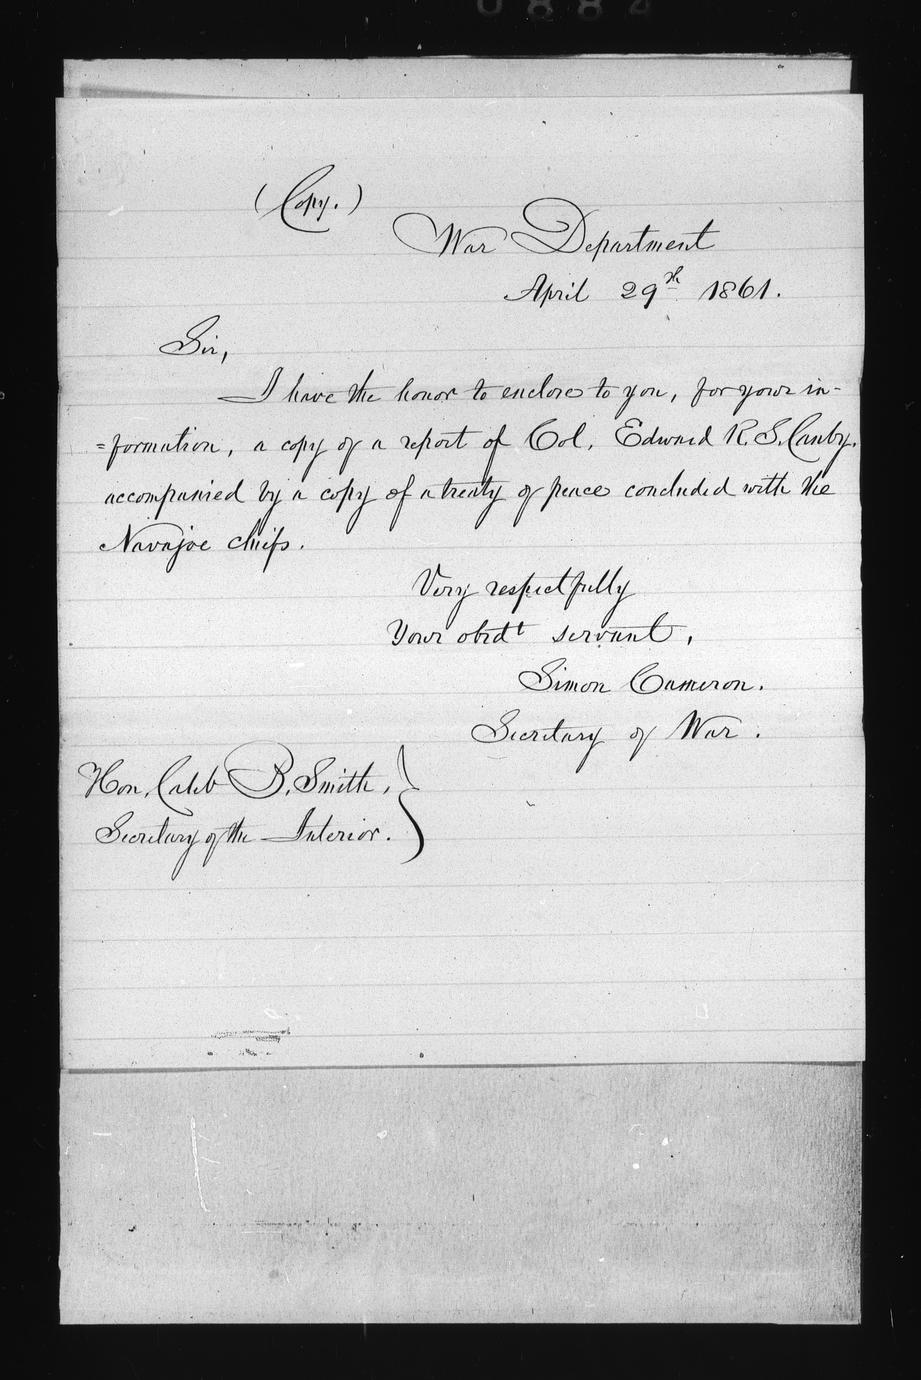 (Copy.)
War Department
April 29th 1861.
Sir,
I have the honor to enclose to you, for your in-
=formation, a copy of a report of Col. Edward R. S. Canby,
accompanied by a copy of a treaty of peace concluded with the
Navajoe chiefs.
Very respectfully
Your obed't servant,
Simon Cameron.
Secretary of War.
Hon. Caleb B. Smith,
Secretary of the Interior.